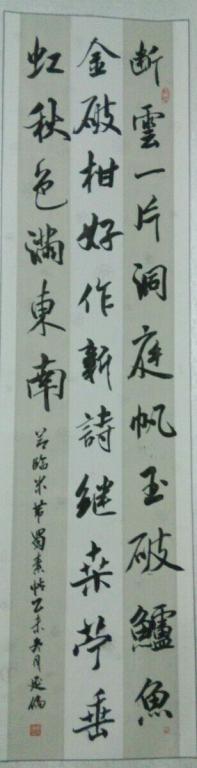 断雲一片洞庭帆玉破鱸魚
金破柑好作新詩継桒苧垂
虹秋色满東南
节臨米芾蜀素帖乙未年月